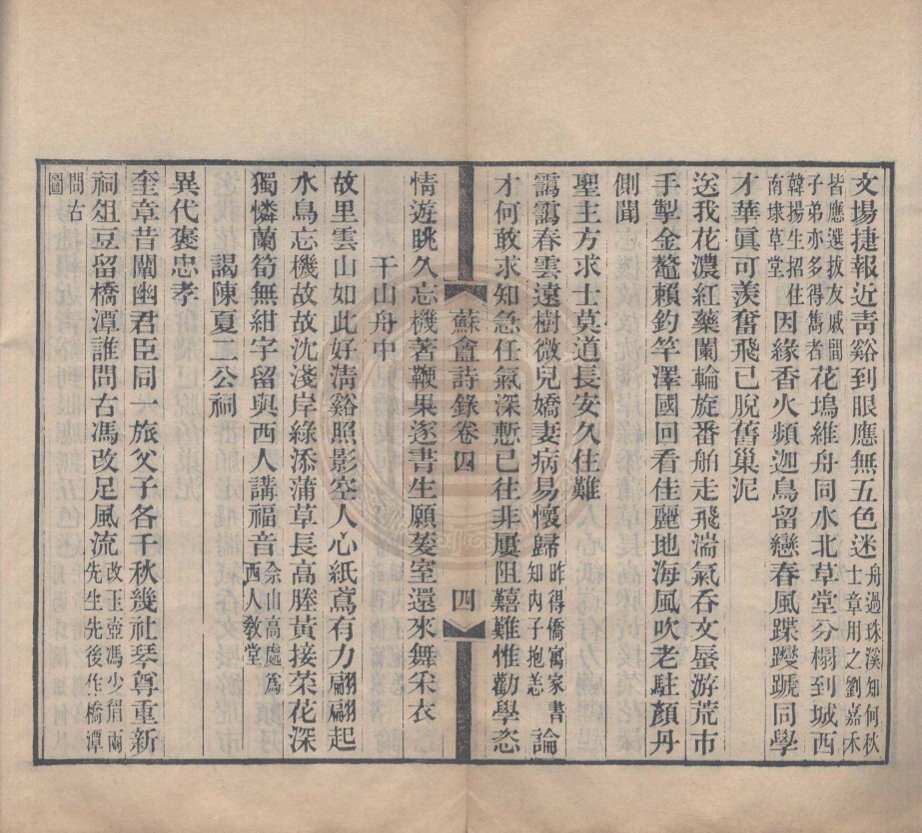 文場捷報近青谿到眼應無五色迷舟過珠溪知何秋士章用之劉嘉禾
皆應選拔友戚間子弟亦多得雋者花塢維舟同水北草堂分榻到城西
韓揚生招住南埭草堂因緣香火頻迦鳥留戀春風蹀躞蹏同學
才華眞可羨奮飛已脫舊巢泥
送我花濃紅藥闌輪旋番舶走飛湍氣吞文蜃游荒市
手掣金鼇賴釣竿澤國回看佳麗地海風吹老駐顏丹
側聞
聖主方求士莫道長安久住難
靄靄春雲遠樹微兒嬌妻病易懷歸昨得僑寓家書知內子抱恙論
才何敢求知急任氣深慙已往非屢阻嬉難惟勸學恣
情遊眺久忘機著鞭果逐書生願萲室還來舞采衣
干山舟中
故里雲山如此好淸谿照影空人心紙鳶有力翩翩起
水鳥忘機故故沈淺岸綠添蒲草長高塍黃接菜花深
獨憐蘭筍無紺宇留與西人講福音佘山高處爲西人敎堂
謁陳夏二公祠
異代褒忠孝
奎章昔闡幽君臣同一旅父子各千秋幾社琴尊重新
祠俎豆留橋潭誰問古馮改足風流改玉壺馮少眉兩先生先後作橋潭
問古圖
蘇盦詩錄卷四
四